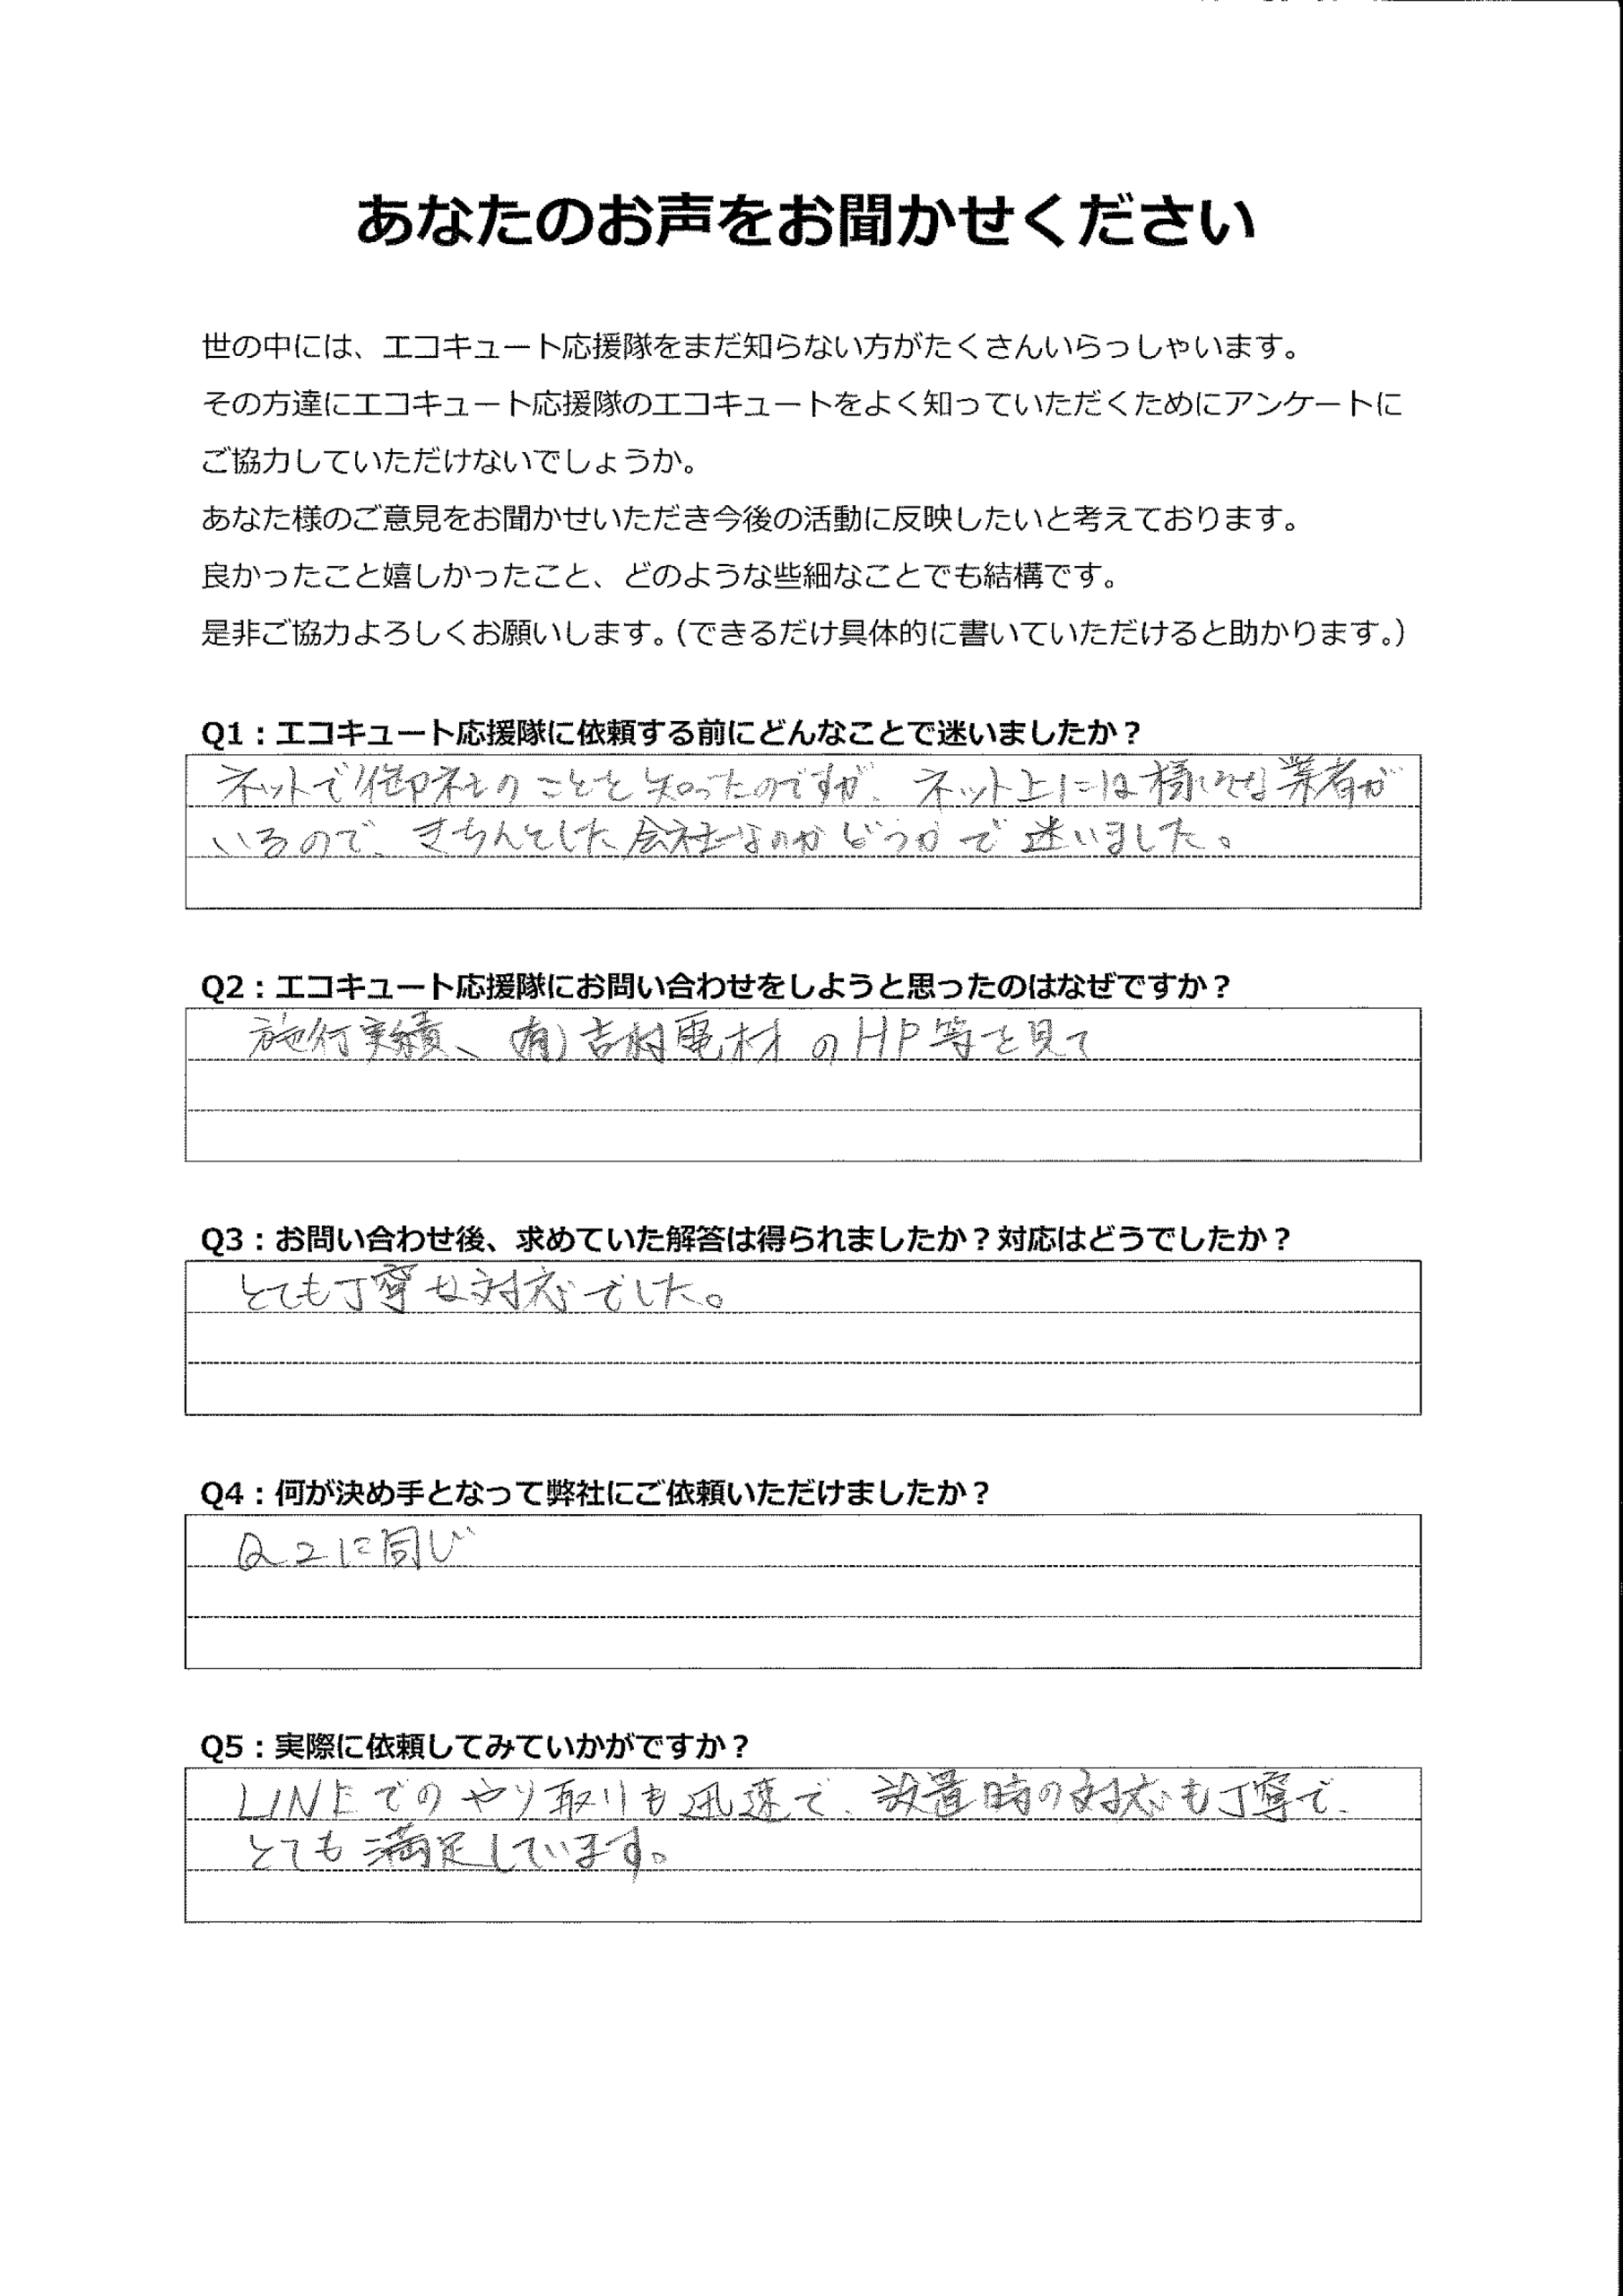 あなたのお声をお聞かせください
世の中には、エコキュート応援隊をまだ知らない方がたくさんいらっしゃいます。
その方達にエコキュート応援隊のエコキュートをよく知っていただくためにアンケートに
ご協力していただけないでしょうか。
あなた様のご意見をお聞かせいただき今後の活動に反映したいと考えております。
良かったこと嬉しかったこと、どのような些細なことでも結構です。
是非ご協力よろしくお願いします。（できるだけ具体的に書いていただけると助かります。）
Q1：エコキュート応援隊に依頼する前にどんなことで迷いましたか？
ネットで御社のことを知ったのですが、ネット上には様々な業者が
いるので、きちんとした会社なのかどうかで迷いました。
Q2：エコキュート応援隊にお問い合わせをしようと思ったのはなぜですか？
施行実績、(有)吉村電材のHP等を見て
Q3：お問い合わせ後、求めていた解答は得られましたか？対応はどうでしたか？
とても丁寧な対応でした。
Q4：何が決め手となって弊社にご依頼いただけましたか？
Q2に同じ
Q5：実際に依頼してみていかがですか？
LINEでのやり取りも迅速で、設置時の対応も丁寧で、
とても満足しています。